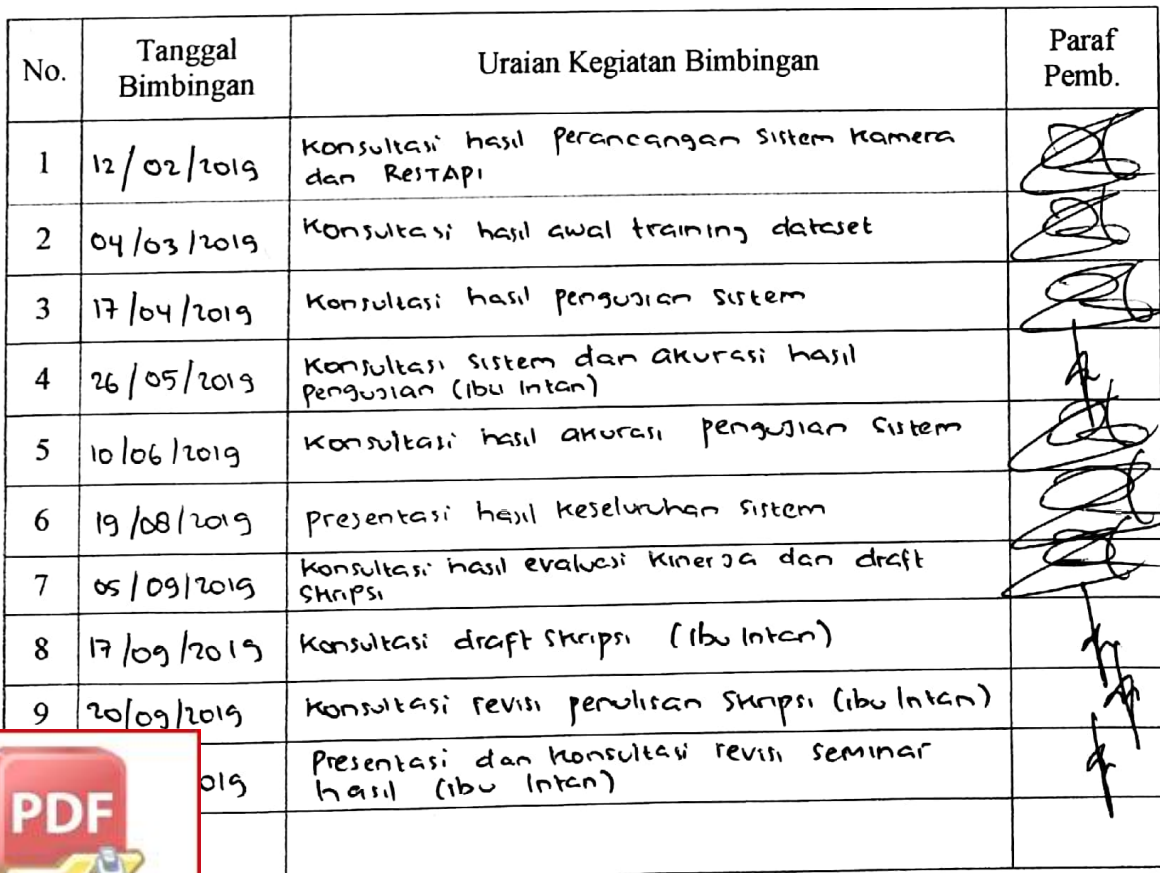 No.
Tanggal
Bimbingan
Uraian Kegiatan Bimbingan
Paraf
Pemb.
1
12/02/2019
Konsultasi hasil Perancangan Sistem Kamera
dan RESTAPI
2
04/03/2019
Konsultasi hasil awal training dataset
3
17/04/2019
Konsultasi hasil pengujian sistem
4
26/05/2019
Konsultasi sistem dan akurasi hasil
Pengujian (ibu Intan)
5
10/06/2019
Konsultasi hasil akurasi pengujian sistem
6
19/08/2019
presentasi hasil keseluruhan sistem
7
05/09/2019
Konsultasi hasil evaluasi kinerja dan draft
Skripsi
8
17/09/2019
Konsultasi draft Skripsi (Ibu Intan)
9
20/09/2019
Konsultasi revisi penulisan Skripsi (ibu Intan)
019
Presentasi dan konsultasi revisi seminar
hasil (ibu Intan)
PDF